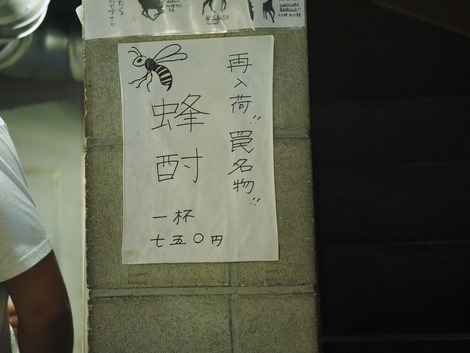 再入荷!! 罠名物!!
蜂酎
一杯
七五〇円